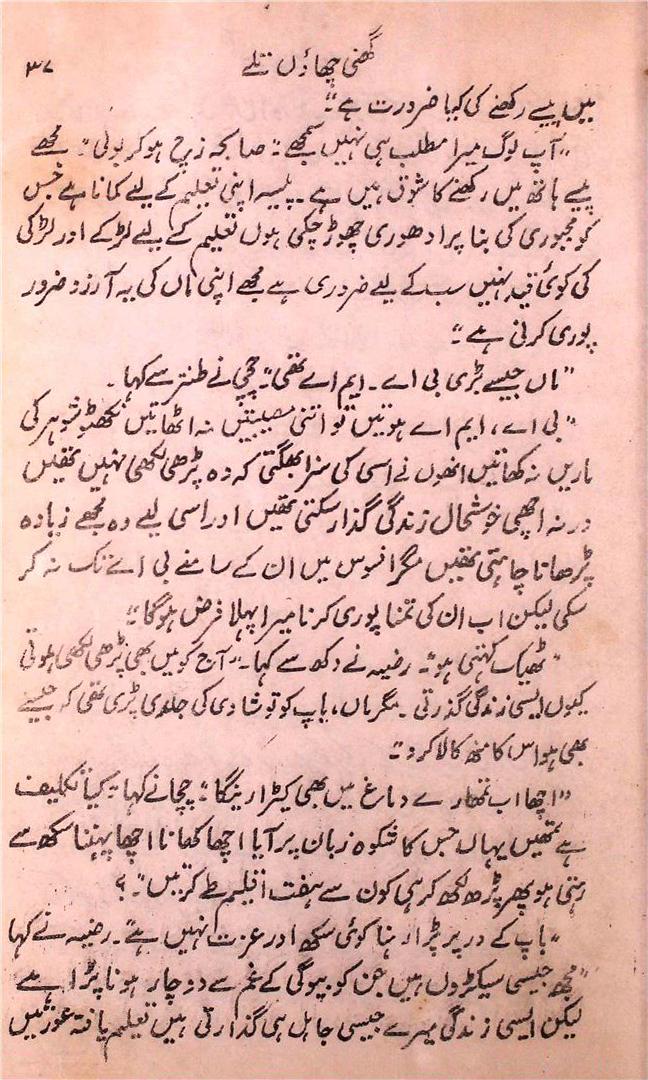 گھنی چھاؤں تلے
۳۷
میں پیسے رکھنے کی کیا ضرورت ہے"۔
"آپ لوگ میرا مطلب ہی نہیں سمجھے"۔ صابحہ زچ ہو کر بولی"۔ مجھے
پیسے ہاتھ میں رکھنے کا شوق نہیں ہے۔ پیسہ اپنی تعلیم کے لیے کمانا ہے جس
کو مجبوری کی بنا پر ادھوری چھوڑ چکی ہوں تعلیم کے لیے لڑکے اور لڑکی
کی کوئی قید نہیں سب کے لیے ضروری ہے مجھے اپنی ماں کی یہ آرزو ضرور
پوری کرنی ہے"۔
"ماں جیسے بڑی بی اے۔ ایم اے تھی"۔ چچی نے طنز سے کہا۔
"بی اے، ایم اے ہوتیں تو اتنی مصیبتیں نہ اٹھاتیں نکھٹو شوہر کی
ماریں نہ کھاتیں انھوں نے اسی کی سزا بھگتی کہ وہ پڑھی لکھی نہیں تھیں
ورنہ اچھی خوشحال زندگی گذار سکتی تھیں اور اسی لیے وہ مجھے زیادہ
پڑھانا چاہتی تھیں مگر افسوس میں ان کے سامنے بی اے تک نہ کر
سکی لیکن اب ان کی تمنا پوری کرنا میرا پہلا فرض ہوگا"۔
"ٹھیک کہتی ہو"۔ رضیہ نے دکھ سے کہا۔ "آج کو میں بھی پڑھی لکھی ہوتی
کیوں ایسی زندگی گذرتی۔ مگر ماں، باپ کو تو شادی کی جلدی پڑی تھی کہ جیسے
بھی ہو اس کا منھ کالا کرو"۔
"اچھا اب تمھارے دماغ میں بھی کیڑا رینگا"۔ چچا نے کہا "کیا تکلیف
ہے تمھیں یہاں جس کا شکوہ زبان پر آیا اچھا کھانا اچھا پہننا سکھ سے
رہتی ہو پھر پڑھ لکھ کر ہی کون سے ہفت اقلیم طے کرتیں"۔؟
"باپ کے در پر پڑا رہنا کوئی سکھ اور عزت نہیں ہے"۔ رضیہ نے کہا
"مجھ جیسی سیکڑوں ہیں جن کو بیوگی کے غم سے دوچار ہونا پڑا ہے
لیکن ایسی زندگی میرے جیسی جاہل ہی گذارتی ہیں تعلیم یافتہ عورتیں